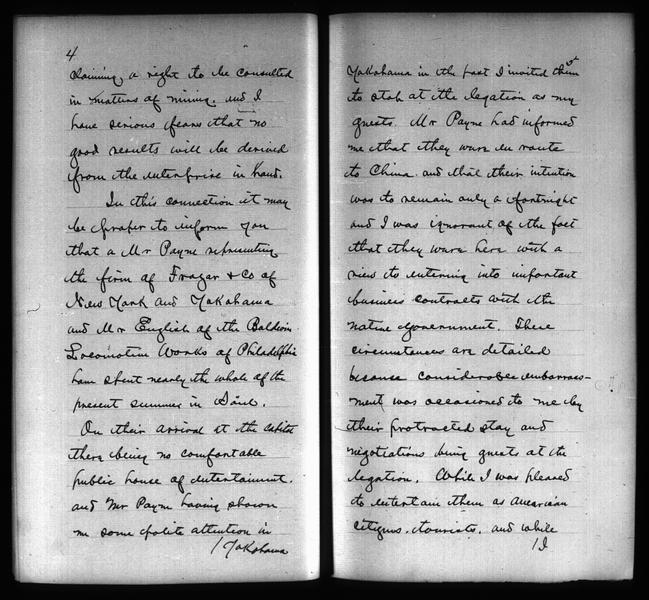 4
claiming a right to be consulted
in matters of mining. and I
have serious fears that no
good results will be derived
from the enterprise in hand.
In this connection it may
be proper to inform you
that a Mr Payne representing
the firm of Frazar & Co of
New York and Yokohama
and Mr English of the Baldwin
Locomotive Works of Philadelphia
have spent nearly the whole of the
present summer in Söul.
On their arrival at the capitol
there being no comfortable
public house of entertainment.
and Mr Payne having shown
me some polite attention in
/ Yokohama
Yokohama in the past I invited them
to stop at the legation as my
guests. Mr Payne had informed
me that they were en route
to China and that their intention
was to remain only a fortnight
and I was ignorant of the fact
that they were here with a
view to entering into important
business contracts with the
native government. These
circumstances are detailed
because considerable embarrass-
ment was occasioned to me by
their protracted stay and
negotiations being guest at the
legation. While I was pleased
to entertain them as American
citizens, tourists, and while
/ I